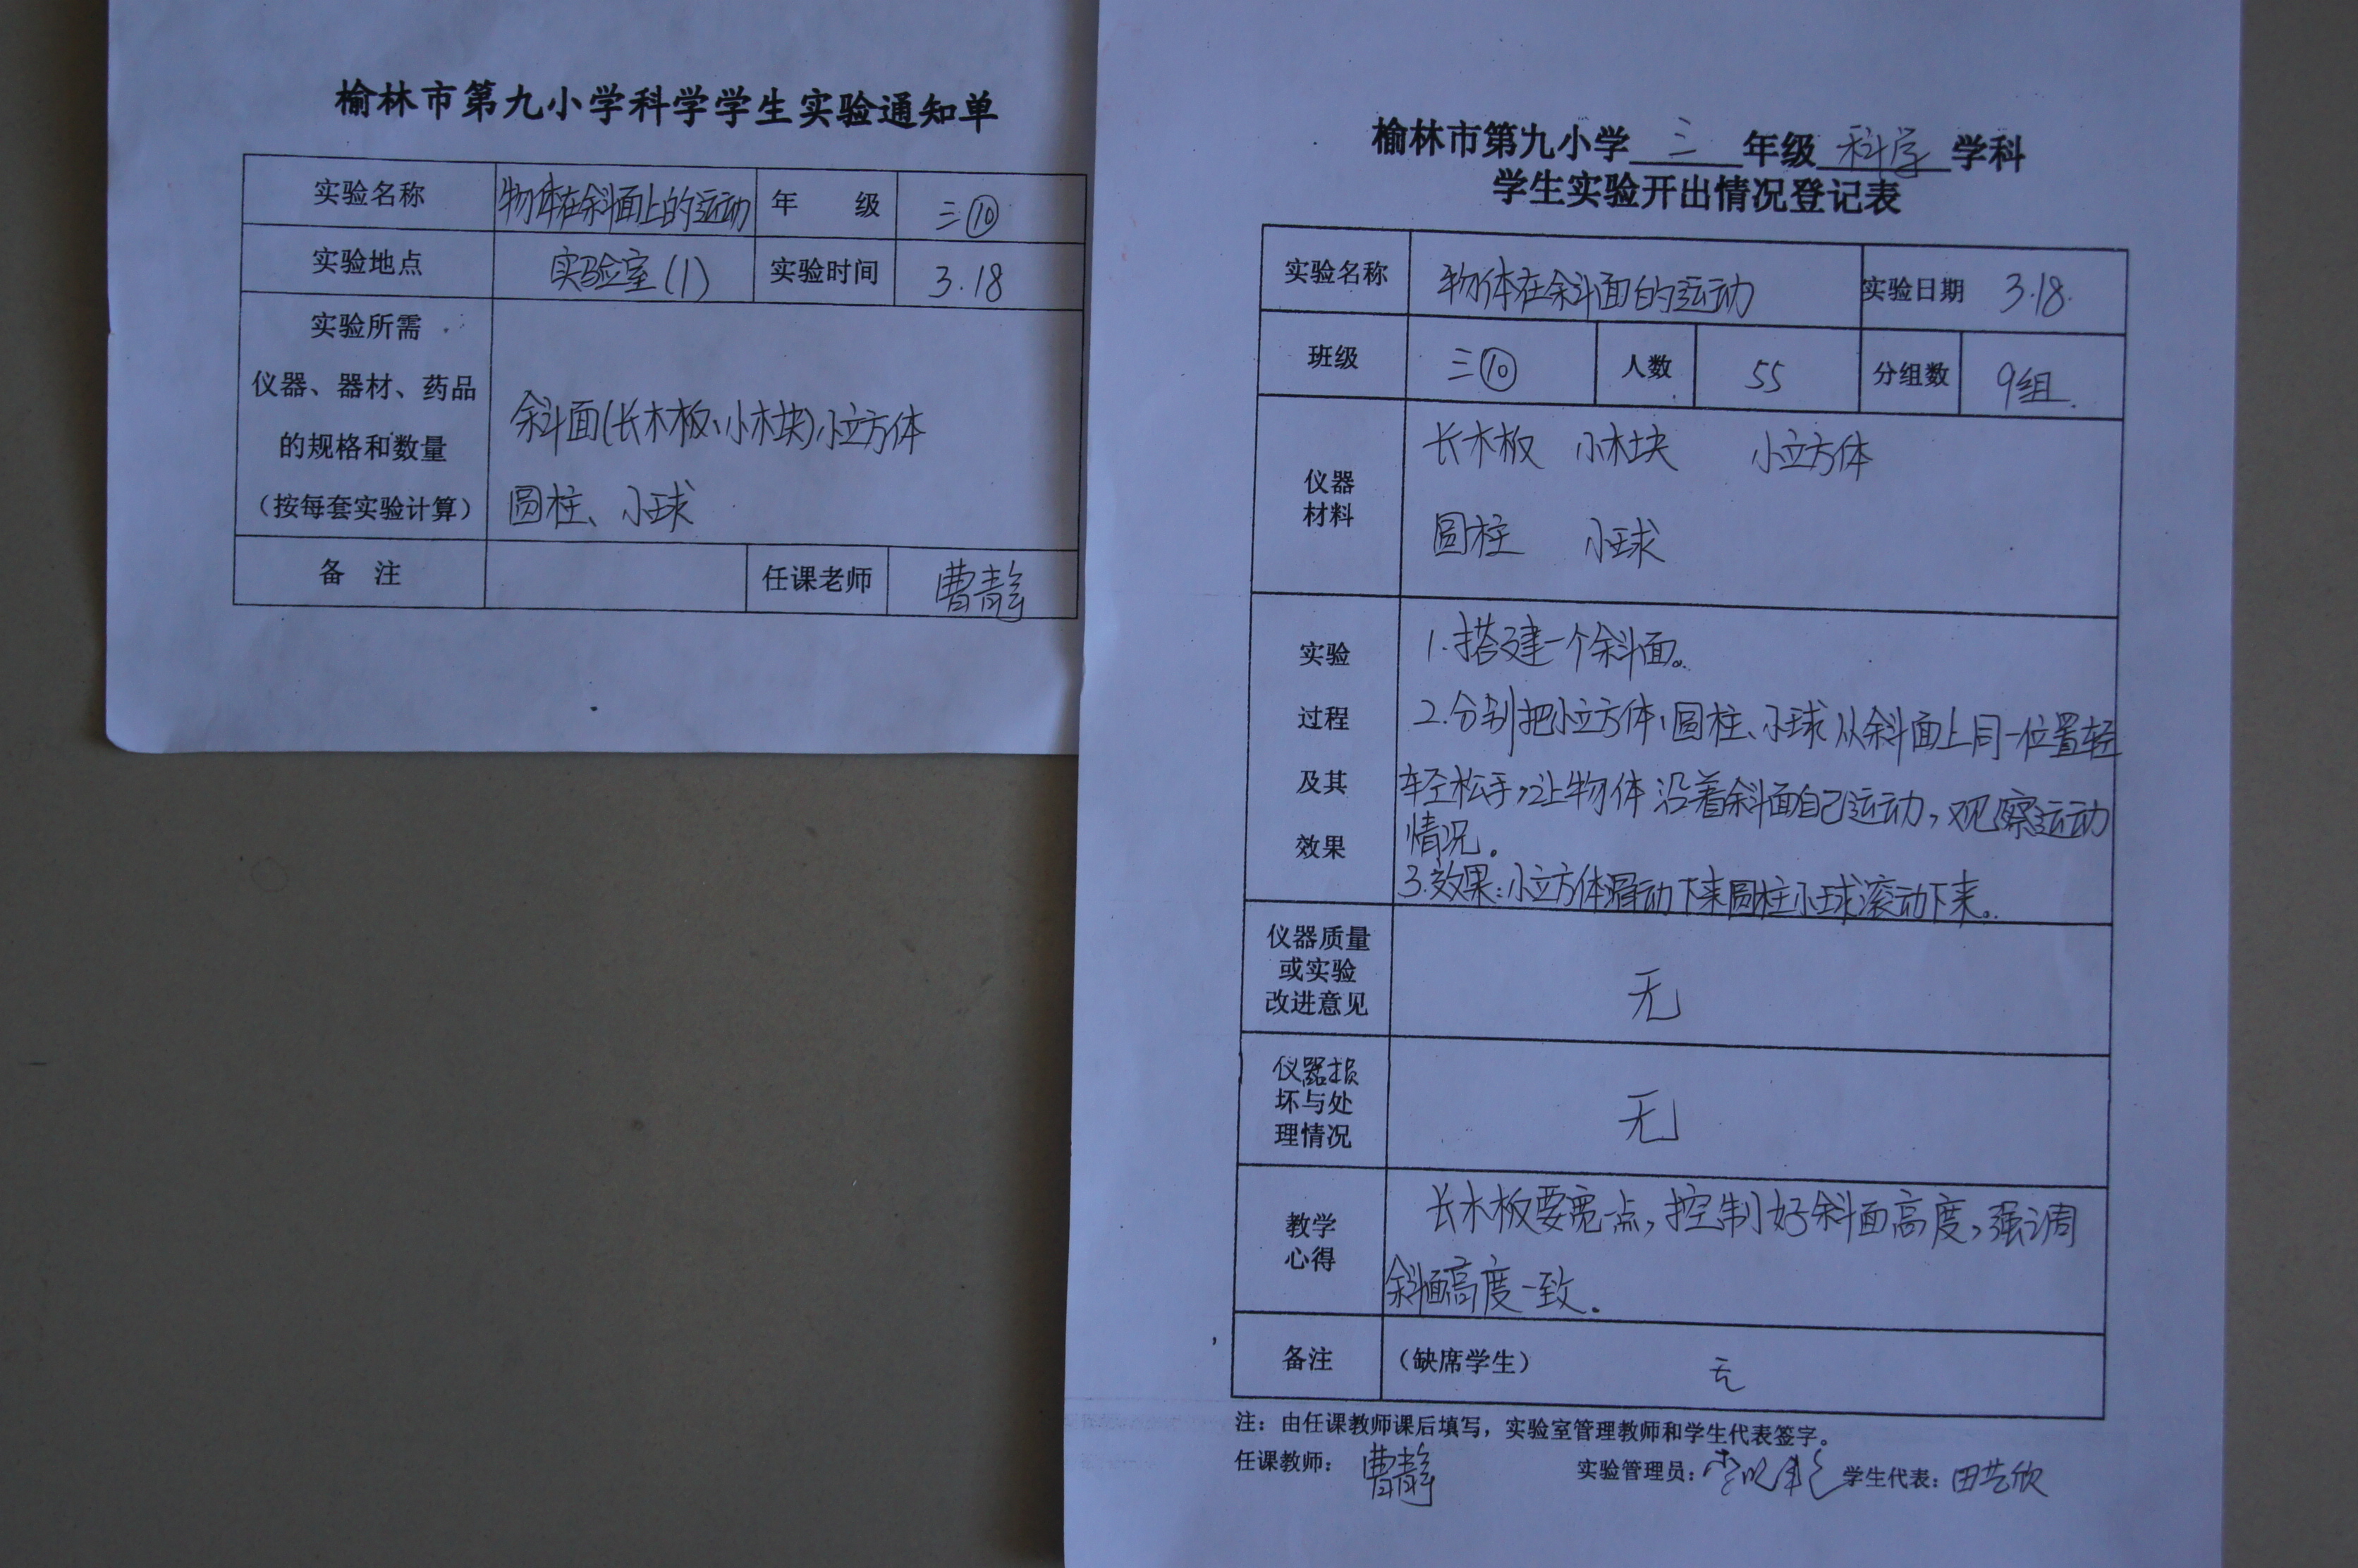 榆林市第九小学科学学生实验通知单
实验名称 物体在斜面上的运动 年 级 三⑩
实验地点 实验室(1) 实验时间 3.18
实验所需
仪器、器材、药品
的规格和数量
(按每套实验计算)
斜面(长木板、小木块)小立方体
圆柱、小球
备 注 任课老师 曹静
榆林市第九小学 三 年级 科学 学科
学生实验开出情况登记表
实验名称 物体在斜面的运动 实验日期 3.18.
班级 三⑩ 人数 55 分组数 9组.
仪器
材料
长木板 小木块 小立方体
圆柱 小球
实验
过程
及其
效果
1.搭建一个斜面。
2.分别把小立方体、圆柱、小球从斜面上同一位置轻
轻松手,让物体沿着斜面自己运动,观察运动
情况.
3.效果:小立方体滑动下来圆柱小球滚动下来。
仪器质量
或实验
改进意见
无
仪器损
坏与处
理情况
无
教学
心得
长木板要宽点,控制好斜面高度,强调
斜面高度一致.
备注 (缺席学生) 无
注:由任课教师课后填写,实验室管理教师和学生代表签字。
任课教师: 曹静 实验管理员: 学生代表: 田艺欣